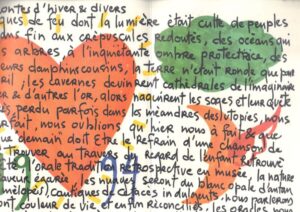 contes d'hiver & divers
ques de feu dont la lumière était culte de peuples
ans fin aux crépuscules redoutés, des océans qui
arbres à l'inquiétante ombre protectrice, des
eurs dauphins cousins, la terre n'était ronde que pour
les cavernes devinrent cathédrales de l'imaginaire
r & d'autres l'or, alors naquirent les sages et leur quête
s, perdu parfois dans les méandres des utopies, nous
rfait, nous oublions qu'hier nous a fait & que
ue demain doit être le refrain d'une chanson de
trouver au travers le regard de l'enfant retrouvé
orale tradition rétrospective en musée, la nature
les nuages seront du blanc opale d'antan
cantiques de faces indulgents, nous parlerons
ont couleur de vie & enfin réconciliés, les oracles nous